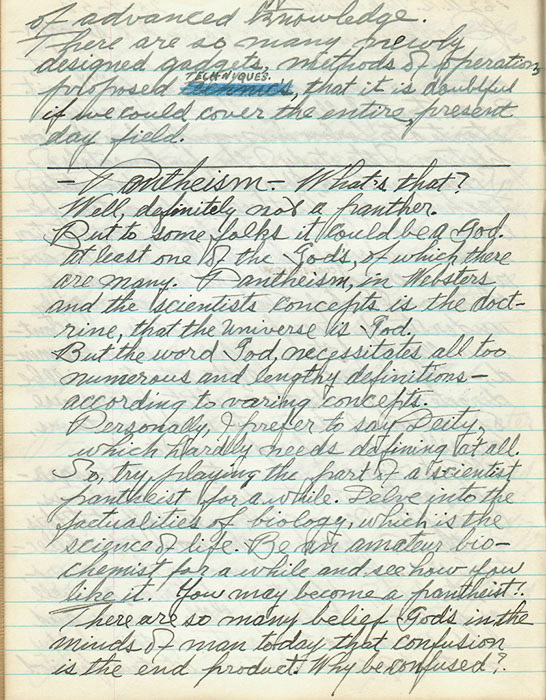 of advanced knowledge.
There are so many newly
designed gadgets, methods of operation,
TECHNIQUES.
proposed technics, that it is doubtful
if we could cover the entire, present
day field.
- Pantheism - What's that?
Well, definitely not a panther.
But to some folks it could be a God.
at least one of the Gods, of which there
are many. Pantheism, in Websters
and the scientists concepts is the doct-
rine, that the universe is God.
But the word God, necessitates all too
numerous and lengthy definitions -
according to varing concepts.
Personally, I prefer to say Deity,
which hardly needs defining at all.
So, try, playing the part of a scientist
pantheist for a while. Delve into the
factualities of biology, which is the
science of life. Be an amateur bio-
chemist for a while and see how you
like it. You may become a pantheist!.
There are so many belief God's in the
minds of man today that confusion
is the end product. Why be confused?.